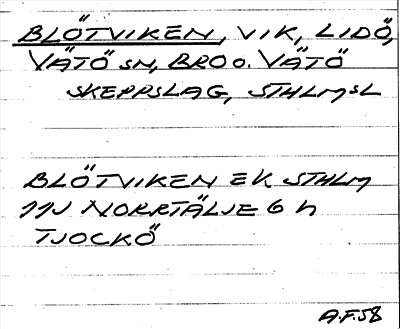 BLÖTVIKEN, VIK, LIDÖ,
VÄTÖ SN, BRO O. VÄTÖ
SKEPPSLAG, STHLMSL
BLÖTVIKEN EK STHLM
11J NORRTÄLJE 6 h
TJOCKÖ
A.F.58